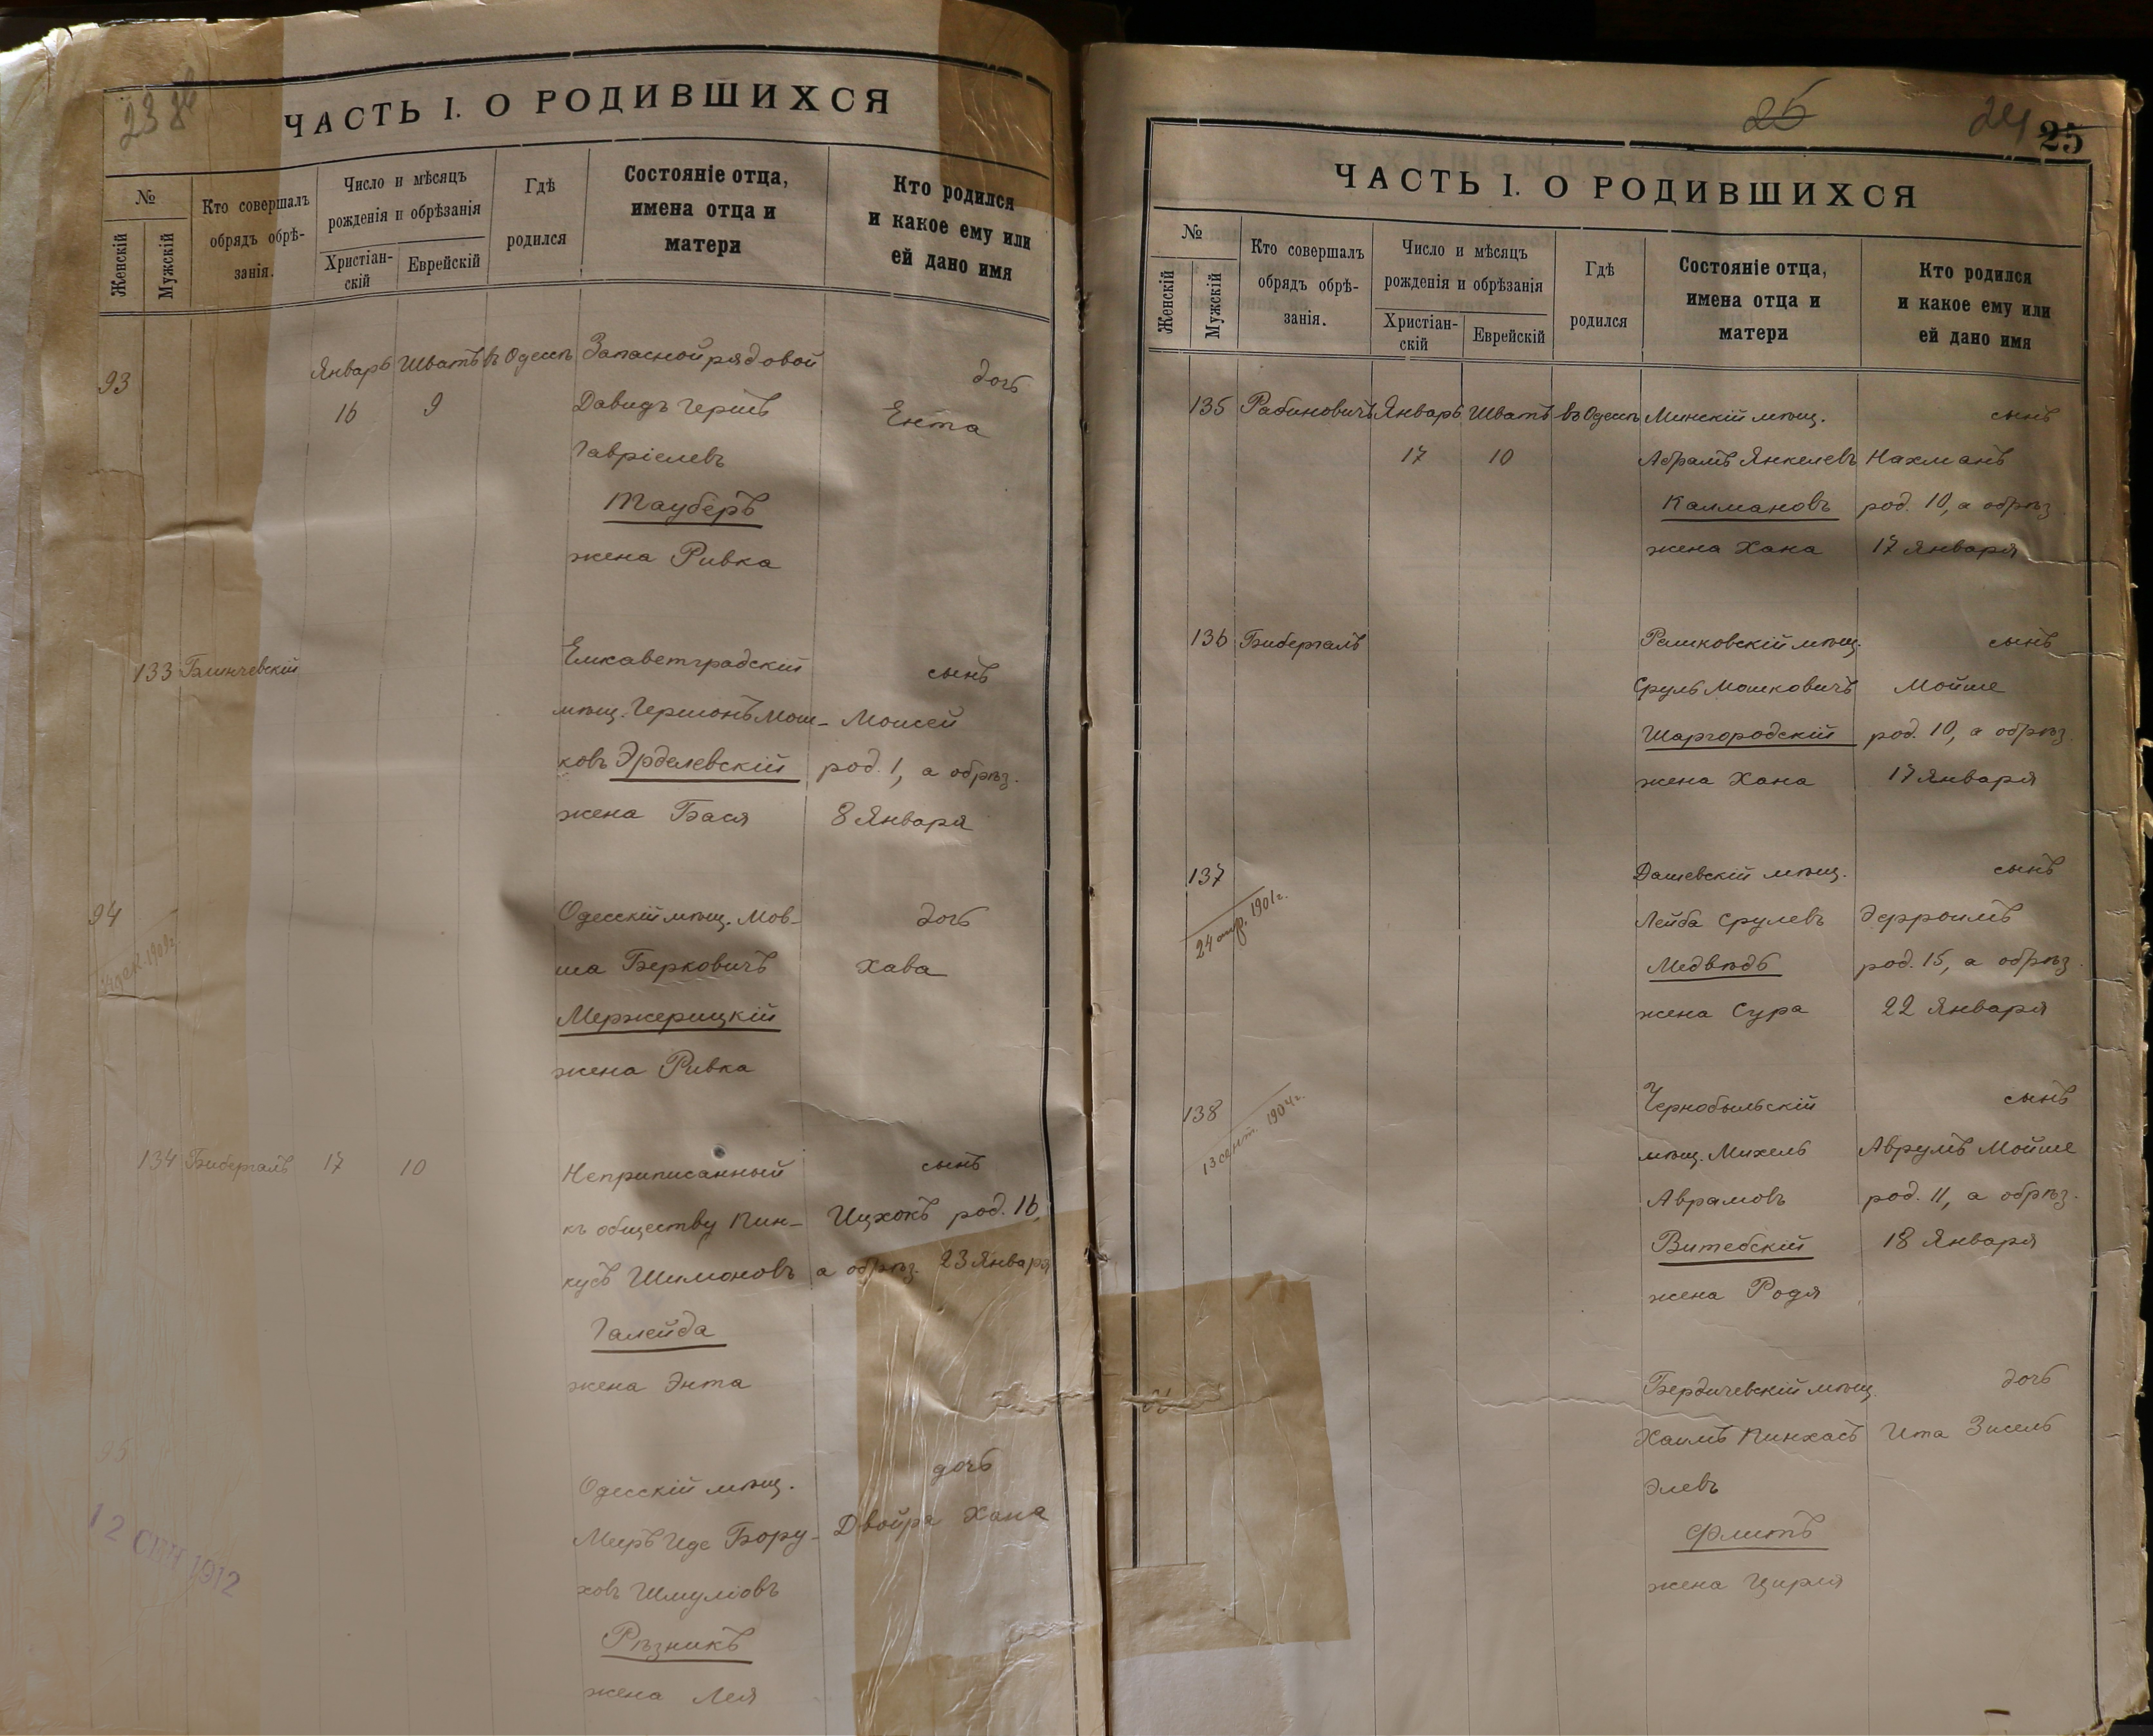 ЧАСТЬ I. О РОДИВШИХСЯ
№
Женскій
Мужскій
Кто совершалъ
обрядъ обрѣ-
занія.
Число и мѣсяцъ
рожденія и обрѣзанія
Христіан-
скій
Еврейскій
Гдѣ
родился
Состояніе отца,
имена отца и
матери
Кто родился
и какое ему или
ей дано имя
93 Январь Шватъ въ Одессѣ Запасной рядовой дочь
16 9 Давидъ Гершъ Ента
Гавріелевъ
Тауберъ
жена Ривка
133 Блинчевскій Елисаветградскій сынъ
мѣщ. Гершонъ Мош- Моисей
ковъ Эрделевскій род. 1, а обрѣз.
жена Бася 8 Января
94 Одесскій мѣщ. Мов- дочь
ша Берковичъ Хава
Мержерицкій
жена Ривка
134 Бибергалъ 17 10 Неприписанный сынъ
къ обществу Пин- Ицхокъ род. 16,
кусъ Шимоновъ а обрѣз. 23 Января
Галейда
жена Энта
95 Одесскій мѣщ. дочь
Мееръ Иде Бору- Двойра Хана
ховъ Шмуліовъ
Рѣзникъ
жена Лея
12 СЕН 1912
25
24 25
ЧАСТЬ I. О РОДИВШИХСЯ
№
Женскій
Мужскій
Кто совершалъ
обрядъ обрѣ-
занія.
Число и мѣсяцъ
рожденія и обрѣзанія
Христіан-
скій
Еврейскій
Гдѣ
родился
Состояніе отца,
имена отца и
матери
Кто родился
и какое ему или
ей дано имя
135 Рабиновичъ Январь Шватъ въ Одессѣ Минскій мѣщ. сынъ
17 10 Абрамъ Янкелевъ Нахманъ
Калмановъ род. 10, а обрѣз.
жена Хана 17 Января
136 Бибергалъ Рашковскій мѣщ. сынъ
Сруль Мошковичъ Мойше
Шаргородскій род. 10, а обрѣз.
жена Хана 17 Января
137 Дашевскій мѣщ. сынъ
24 апр. 1901 г.
Лейба Срулевъ Эфроимъ
Медвѣдь род. 15, а обрѣз.
жена Сура 22 Января
138 Чернобыльскій сынъ
13 сент. 1904 г.
мѣщ. Михель Аврумъ Мойше
Аврамовъ род. 11, а обрѣз.
Витебскій 18 Января
жена Родя
Бердичевскій мѣщ. дочь
Хаимъ Пинхасъ Ита Зисель
Элевъ
Флитъ
жена Цирля